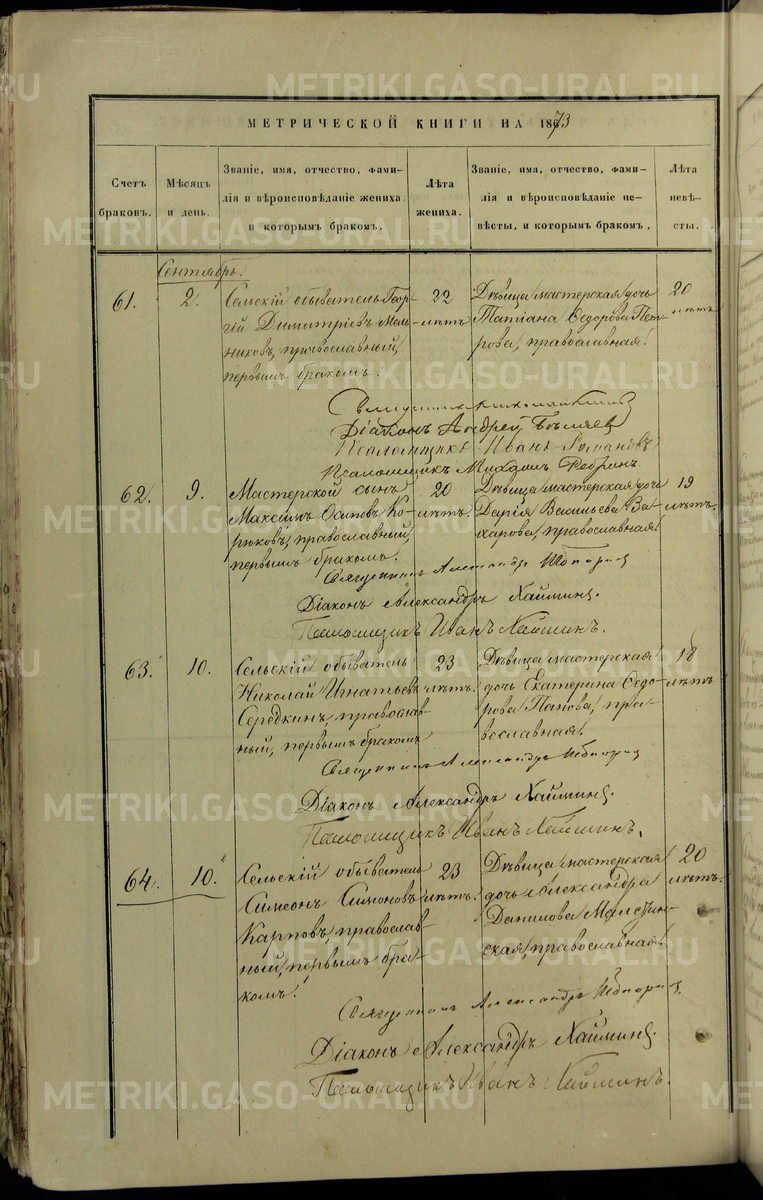 МЕТРИЧЕСКОЙ КНИГИ НА 1873
Счетъ браковъ.
Мѣсяцъ и день.
Званіе, имя, отчество, фами-
лія и вѣроисповѣданіе жениха.
и которымъ бракомъ.
Лѣта жениха.
Званіе, имя, отчество, фами-
лія и вѣроисповѣданіе не-
вѣсты, и которымъ бракомъ,
Лѣта невѣ-
сты.
Сентябрь.
61. 2. Сельскій обыватель Геор-
гій Димитріевъ Мель-
никовъ, православный,
первымъ бракомъ.
22 лѣтъ
Дѣвица мастерская дочь
Татіана Ѳедорова Пет-
рова, православная.
20 лѣтъ
Священникъ
Діаконъ Андрей Бѣляев
Псаломщикъ Иванъ Романовъ
Псаломщикъ Михаилъ
62. 9. Мастерской сынъ
Максимъ Осиповъ Ко-
рюковъ, православный,
первымъ бракомъ.
20 лѣтъ.
Дѣвица мастерская дочь
Дарія Васильева За-
харова, православная.
19 лѣтъ.
Священникъ Александръ
Діаконъ Александръ Хаймин.
Псаломщикъ Иванъ Хайминъ.
63. 10. Сельскій обыватель
Николай Игнатьевъ
Середкинъ, православ-
ный, первымъ бракомъ
23 лѣтъ.
Дѣвица мастерская
дочь Екатерина Ѳедо-
рова Попова, пра-
вославная.
18 лѣтъ
Священникъ Александръ
Діаконъ Александръ Хаймин.
Псаломщикъ Иванъ Хайминъ.
64. 10. Сельскій обыватель
Симеон Симоновъ
Карповъ, православ-
ный, первымъ бра-
комъ.
23 лѣтъ.
Дѣвица мастерская
дочь Александра
Данилова
православная.
20 лѣтъ.
Священникъ Александръ
Діаконъ Александръ Хаймин.
Псаломщикъ Иванъ Хайминъ.
METRIKI.GASO-URAL.RU